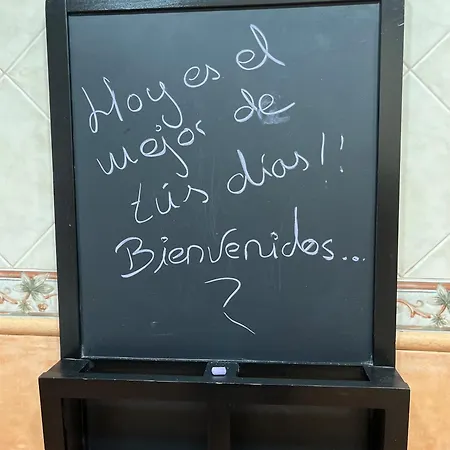 Hoy es el
mejor de
tús días!!
Bienvenidos...
?